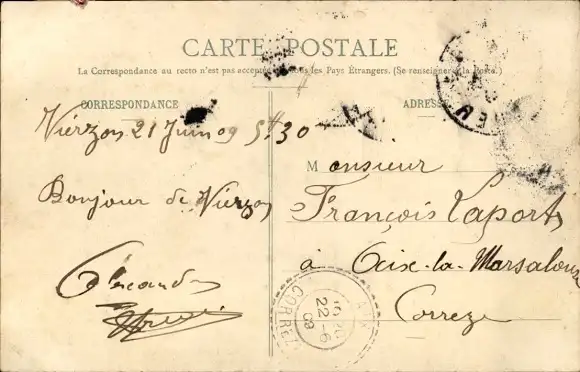 CARTE POSTALE
La Correspondance au recto n'est pas acceptée par tous les Pays Étrangers. (Se renseigner à la Poste.)
CORRESPONDANCE
ADRESSE
Vierzon 21 Juin 09 5h30
Bonjour de Vierzon
Monsieur
François Laporte
à Aix-la-Marsalouse
Correze
CORREZE
22-6
09